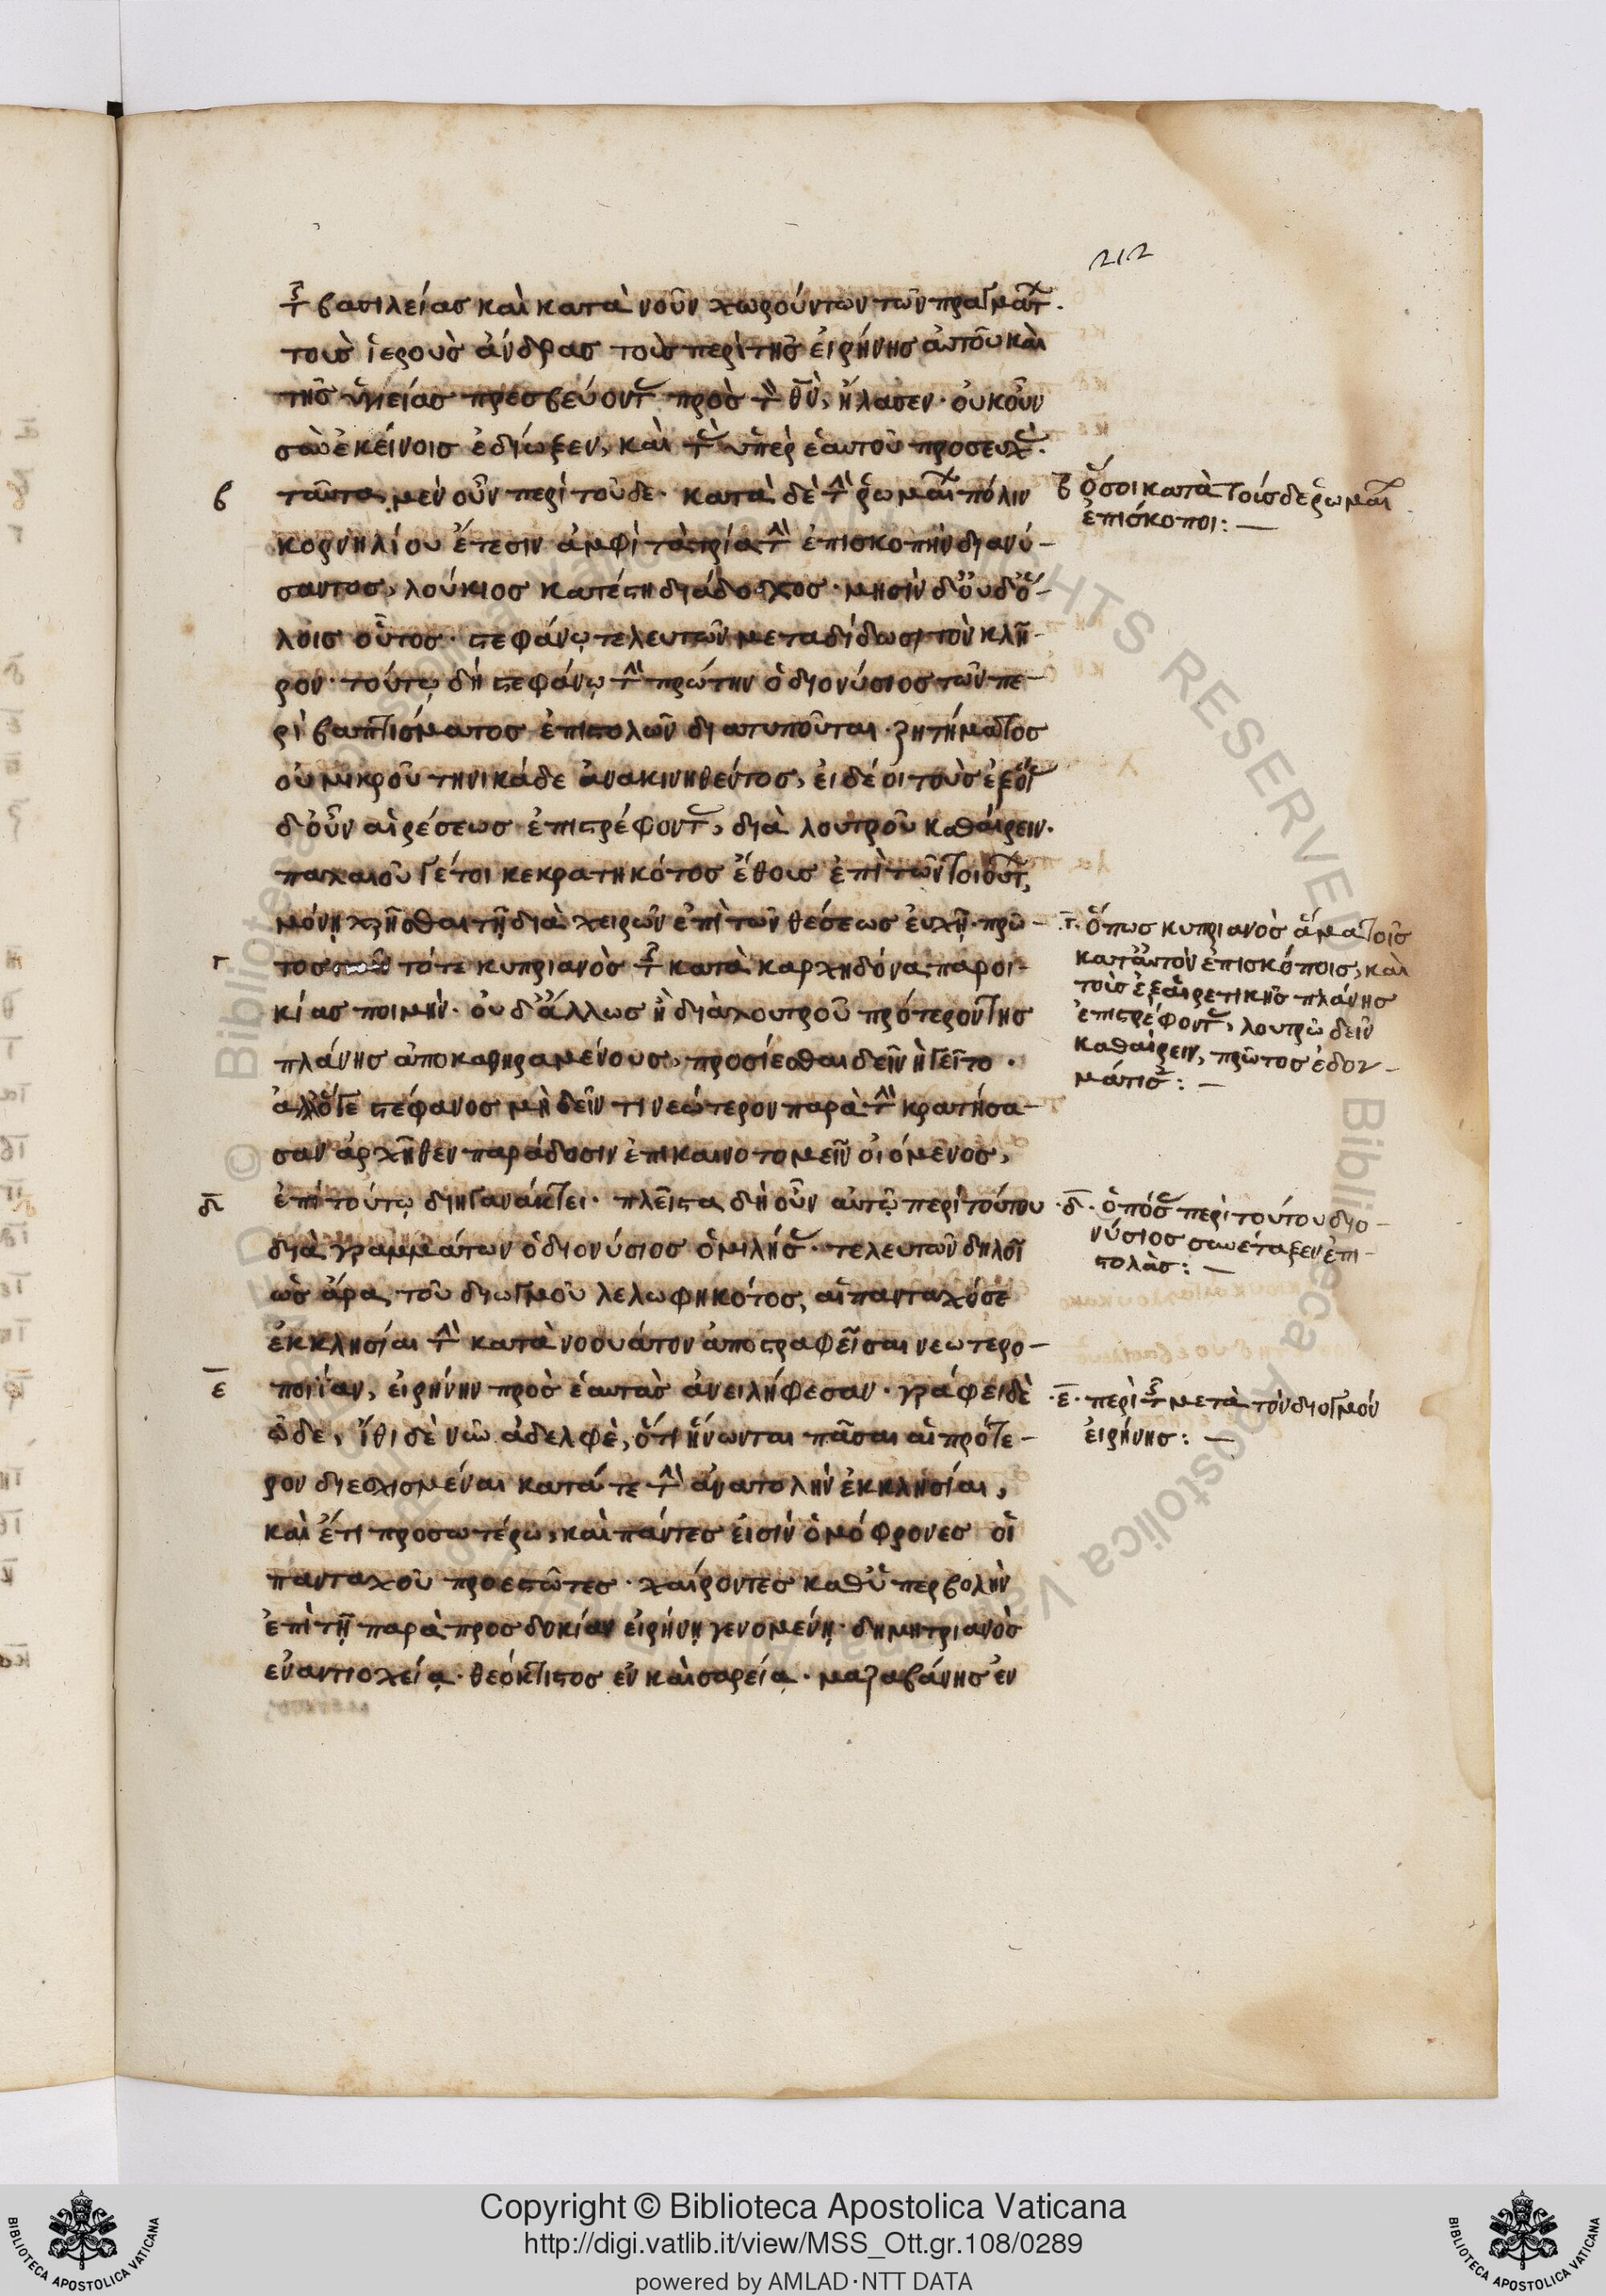 212
τῆς βασιλείας καὶ κατὰ νοῦν χωρούντων τῶν πραγμάτων.
τοὺς ἱεροὺς ἄνδρας τοὺς περὶ τῆς εἰρήνης αὐτοῦ καὶ
τῆς ὑγιείας πρεσβεύοντας πρὸς τὸν θν̄, ἤλασεν· οὐκοῦν
σὺν ἐκείνοις ἐδίωξεν, καὶ τὰς ὑπὲρ ἑαυτοῦ προσευχάς.
β ταῦτα μὲν οὖν περὶ τοῦδε· κατὰ δὲ τὴν ῥωμαίων πόλιν
κορνηλίου ἔτεσιν ἀμφὶ τὰ τρία τὴν ἐπισκοπὴν διανύ-
σαντος, λούκιος κατέστη διάδοχος· μησὶν δ' οὐδ' ὅ-
λοις οὗτος· στεφάνῳ τελευτῶν μεταδίδωσι τὸν κλῆ-
ρον· τούτῳ δὴ στεφάνῳ τὴν πρώτην ὁ διονύσιος τῶν πε-
ρὶ βαπτίσματος ἐπιστολῶν διατυποῦται· ζητήματος
οὐ μικροῦ τηνικάδε ἀνακινηθέντος, εἰ δέοι τοὺς ἐξ οἵας
δ' οὖν αἱρέσεως ἐπιστρέφοντας, διὰ λουτροῦ καθαίρειν.
παλαιοῦ γέ τοι κεκρατηκότος ἔθους ἐπὶ τῶν τοιούτων,
μόνῃ χρῆσθαι τῇ διὰ χειρῶν ἐπὶ τῶν θέσεως εὐχῇ· πρῶ-
γ τος τότε κυπριανὸς τῆς κατὰ καρχηδόνα παροι-
κίας ποιμὴν· οὐδ' ἄλλως ἢ διὰ λουτροῦ πρότερον τῆς
πλάνης ἀποκαθηραμένους, προσίεσθαι δεῖν ἡγεῖτο.
ἀλλ' ὅγε στέφανος μὴ δεῖν τι νεώτερον παρὰ τὴν κρατήσα-
σαν ἀρχῆθεν παράδοσιν ἐπικαινοτομεῖν οἰόμενος,
δ ἐπὶ τούτῳ διηγανάκτει· πλεῖστα δὴ οὖν αὐτῷ περὶ τούτου
διὰ γραμμάτων ὁ διονύσιος ὁμιλήσας· τελευτῶν δηλοῖ
ὡς ἄρα τοῦ διωγμοῦ λελωφηκότος, αἱ πανταχόσε
ἐκκλησίαι τὴν κατὰ νοουάτον ἀποστραφεῖσαι νεωτερο-
ε ποιΐαν, εἰρήνην πρὸς ἑαυτὰς ἀνειλήφεσαν· γράφει δὲ
ὧδε, ἴθι δὲ νῦν ἀδελφὲ, ὅτι ἥνωνται πᾶσαι αἱ πρότε-
ρον διεσχισμέναι κατά τε τὴν ἀνατολὴν ἐκκλησίαι,
καὶ ἔτι προσωτέρω, καὶ πάντες εἰσὶν ὁμόφρονες οἱ
πανταχοῦ προεστῶτες· χαίροντες καθ' ὑπερβολὴν
ἐπὶ τῇ παρὰ προσδοκίαν εἰρήνῃ γενομένῃ· δημητριανὸς
ἐν ἀντιοχείᾳ· θεόκτιστος ἐν καισαρείᾳ· μαζαβάνης ἐν
β ὅσοι κατὰ τούσδε ῥωμαίων
ἐπίσκοποι: —
γ. ὅπως κυπριανὸς ἅμα τοῖς
κατ' αὐτὸν ἐπισκόποις, καὶ
τοὺς ἐξ αἱρετικῆς πλάνης
ἐπιστρέφοντας, λουτρῷ δεῖν
καθαίρειν, πρῶτος ἐδογ-
μάτισεν: —
δ. ὁπόσας περὶ τούτου διο-
νύσιος συνέταξεν ἐπι-
στολάς: —
ε. περὶ τῆς μετὰ τὸν διωγμὸν
εἰρήνης: —
Copyright © Biblioteca Apostolica Vaticana
http://digi.vatlib.it/view/MSS_Ott.gr.108/0289
powered by AMLAD·NTT DATA
BIBLIOTECA APOSTOLICA VATICANA
BIBLIOTECA APOSTOLICA VATICANA